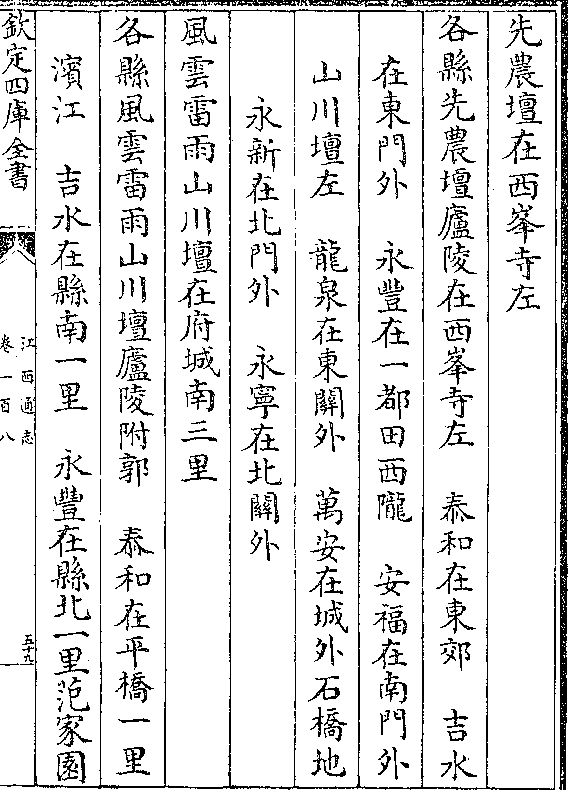 先農壇在西峯寺左
各縣先農壇廬陵在西峯寺左　泰和在東郊　吉水
在東門外　永豐在一都田西隴　安福在南門外
山川壇左　龍泉在東關外　萬安在城外石橋地
永新在北門外　永寧在北關外
風雲雷雨山川壇在府城南三里
各縣風雲雷雨山川壇廬陵附郭　泰和在平橋一里
濱江　吉水在縣南一里　永豐在縣北一里范家園
欽定四庫全書
江西通志
卷一百八
五十九